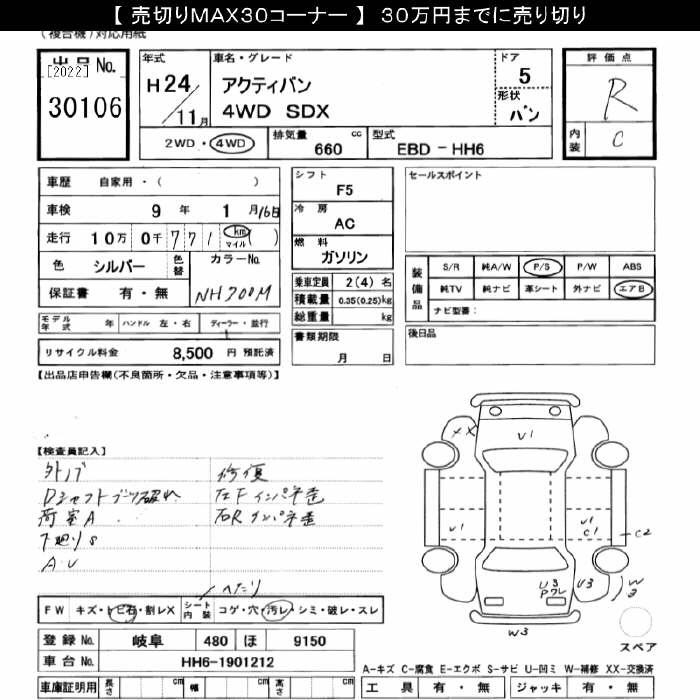 【 売切りMAX30コーナー 】 30万円までに売り切り
(複合機)対応用紙
出品No.
[2022]
30106
年式
H24/11月
車名・グレード
アクティバン
4WD SDX
ドア
5
形状
バン
評価点
R
内装
C
2WD・4WD
排気量
660 cc
型式
EBD-HH6
車歴 自家用・( )
車検 9年 1月16日
走行 10万 0千 771 km マイル ( )
色 シルバー 色替 カラーNo.
保証書 有・無 NH700M
モデル年式 年 ハンドル 左・右 ディーラー・並行
リサイクル料金 8,500 円 預託済
シフト
F5
冷房
AC
燃料
ガソリン
乗車定員 2(4) 名
積載量 0.35(0.25)kg
総重量 kg
書類期限
月 日
セールスポイント
装備品
S/R 純A/W P/S P/W ABS
純TV 純ナビ 革シート 外ナビ エアB
ナビ型番:
後日品
【出品店申告欄(不良箇所・欠品・注意事項等)】
【検査員記入】
Dシャフトブーツ破れ
荷室A
下廻りS
A.U
修復
左Fインパネ歪
右Rインパネ歪
XX
V1
V1
V1
C1
C2
U3
Pワレ
U3
W3
W3
スペア
へたり
FW キズ・トビ石・割レX シート内装 コゲ・穴・汚レ・シミ・破レ・スレ
登録No. 岐阜 480 ほ 9150
車台No. HH6-1901212
車庫証明用 長さ cm 幅 cm 高さ cm
A-キズ C-腐食 E-エクボ S-サビ U-凹ミ W-補修 XX-交換済
工具 有・無 ジャッキ 有・無